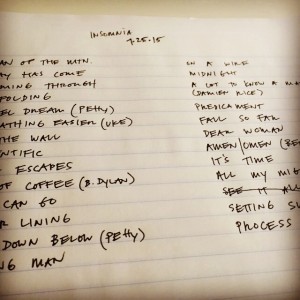 INSOMNIA
7-25-15
AN OF THE MTN.
AY HAS COME
MING THROUGH
FOLDING
EL DREAM (PETTY)
ATHING EASIER (UKE)
THE WALL
NTIFIC
ESCAPES
OF COFFEE (B. DYLAN)
CAN GO
R LINING
DOWN BELOW (PETTY)
NG MAN
ON A WIRE
MIDNIGHT
A LOT TO KNOW A MA
(DAMIEN RICE)
PREDICAMENT
FALL SO FAR
DEAR WOMAN
AMEN/OMEN (BE
IT'S TIME
ALL MY MIG
SEE IT ALL
SETTING SU
PROCESS